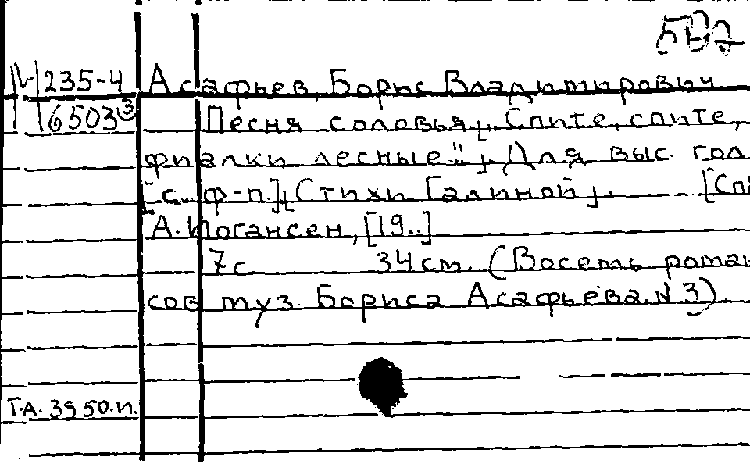 М 235-4 Асафьев, Борис Владимирович
6503 Песня соловья „Спите, спите,
фиалки лесные..." Для выс. гол
[с. ф-п.] Стихи Галиной. [Сп
А. Иогансен, [19..]
7 с 34 см. (Восемь роман
сов муз. Бориса Асафьева. № 3)